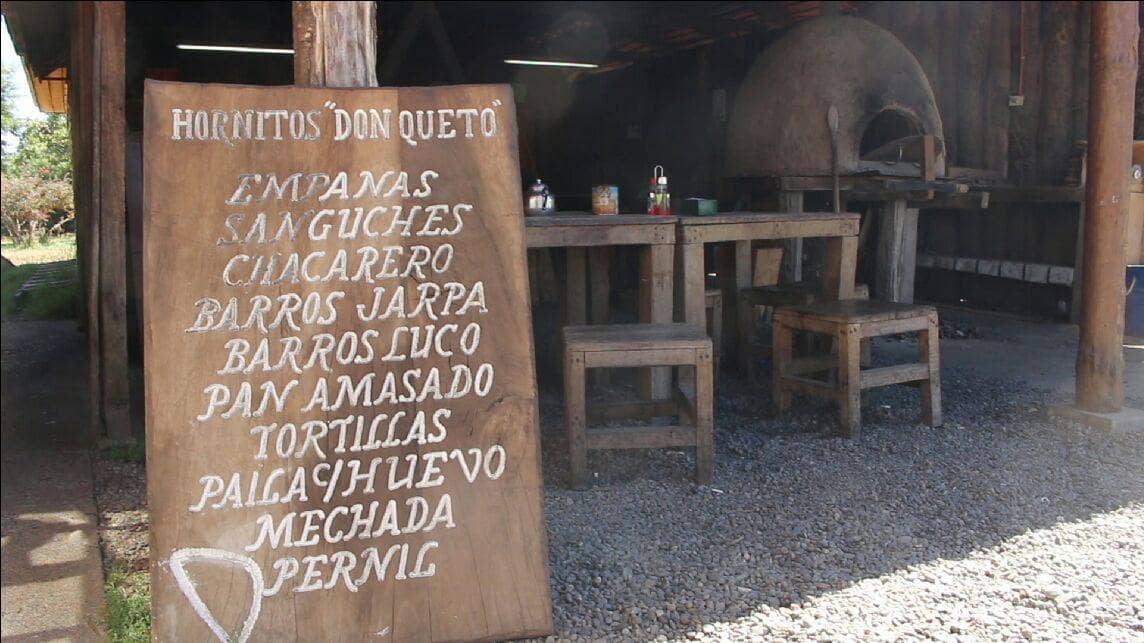 HORNITOS "DON QUETO"
EMPANAS
SANGUCHES
CHACARERO
BARROS JARPA
BARROS LUCO
PAN AMASADO
TORTILLAS
PAILA C/HUEVO
MECHADA
PERNIL